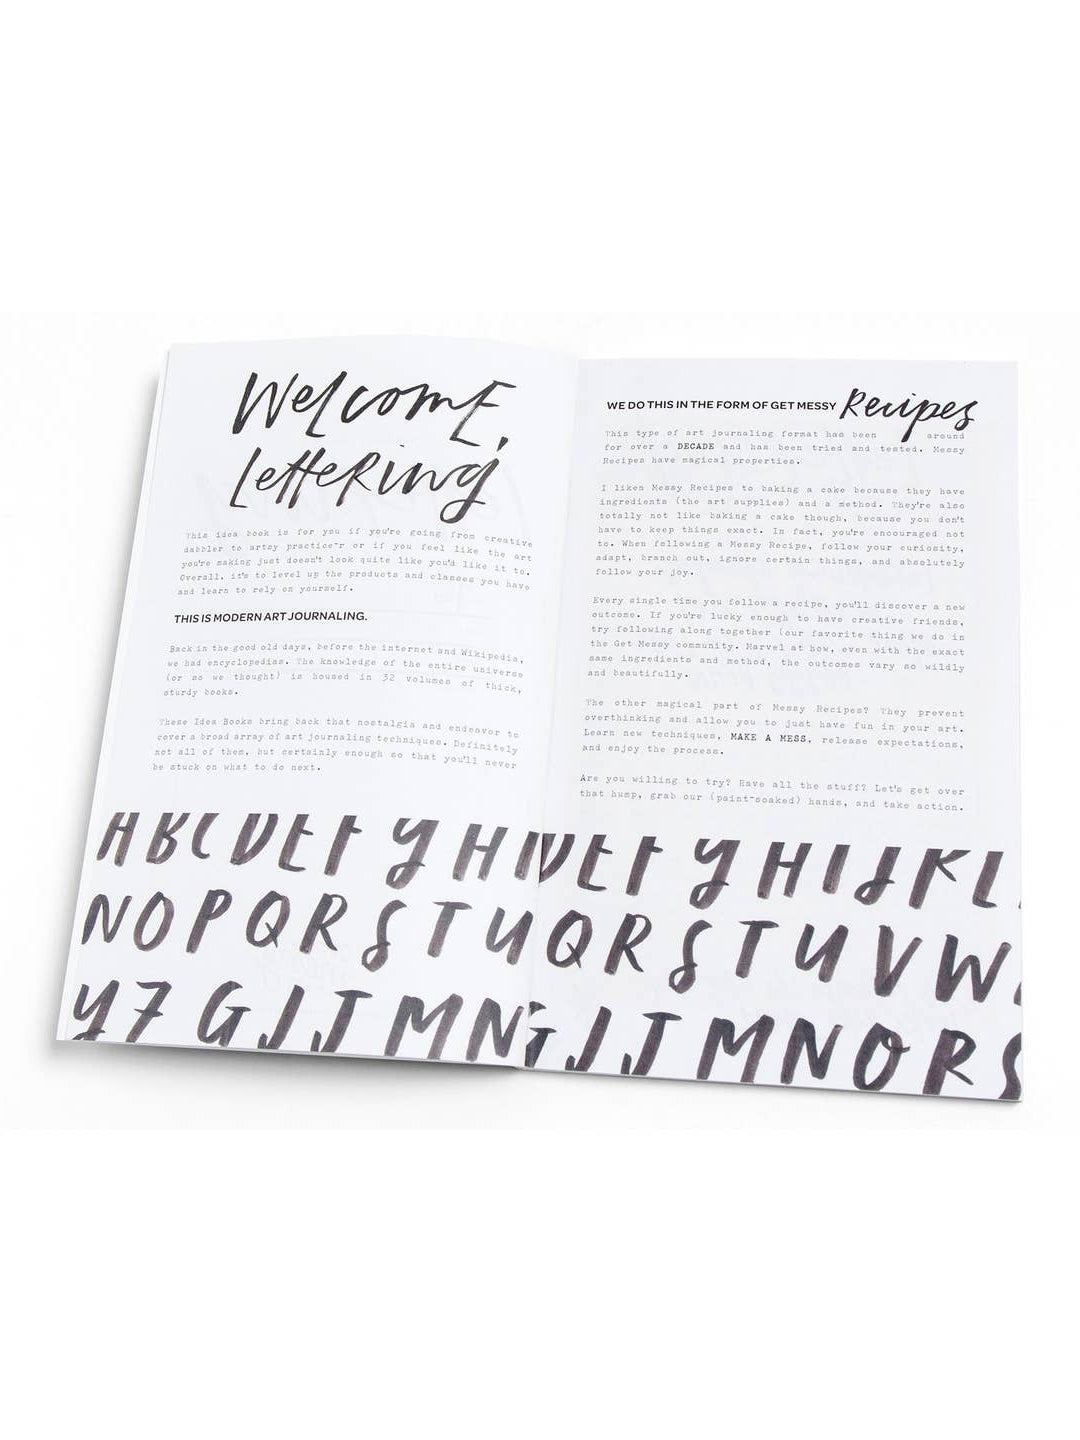 Welcome,
Lettering
This idea book is for you if you're going from creative
dabbler to artsy practice-r or if you feel like the art
you're making just doesn't look quite like you'd like it to.
Overall, it's to level up the products and classes you have
and learn to rely on yourself.
THIS IS MODERN ART JOURNALING.
Back in the good old days, before the internet and Wikipedia,
we had encyclopedias. The knowledge of the entire universe
(or so we thought) is housed in 32 volumes of thick,
sturdy books.
These Idea Books bring back that nostalgia and endeavor to
cover a broad array of art journaling techniques. Definitely
not all of them, but certainly enough so that you'll never
be stuck on what to do next.
ABCDEFGH
NOPQRSTU
YZGIJMN
WE DO THIS IN THE FORM OF GET MESSY Recipes
This type of art journaling format has been around
for over a DECADE and has been tried and tested. Messy
Recipes have magical properties.
I liken Messy Recipes to baking a cake because they have
ingredients (the art supplies) and a method. They're also
totally not like baking a cake though, because you don't
have to keep things exact. In fact, you're encouraged not
to. When following a Messy Recipe, follow your curiosity,
adapt, branch out, ignore certain things, and absolutely
follow your joy.
Every single time you follow a recipe, you'll discover a new
outcome. If you're lucky enough to have creative friends,
try following along together (our favorite thing we do in
the Get Messy community. Marvel at how, even with the exact
same ingredients and method, the outcomes vary so wildly
and beautifully.
The other magical part of Messy Recipes? They prevent
overthinking and allow you to just have fun in your art.
Learn new techniques, MAKE A MESS, release expectations,
and enjoy the process.
Are you willing to try? Have all the stuff? Let's get over
that hump, grab our (paint-soaked) hands, and take action.
DEFGHIJKL
QRSTUVW
GIJMNORS